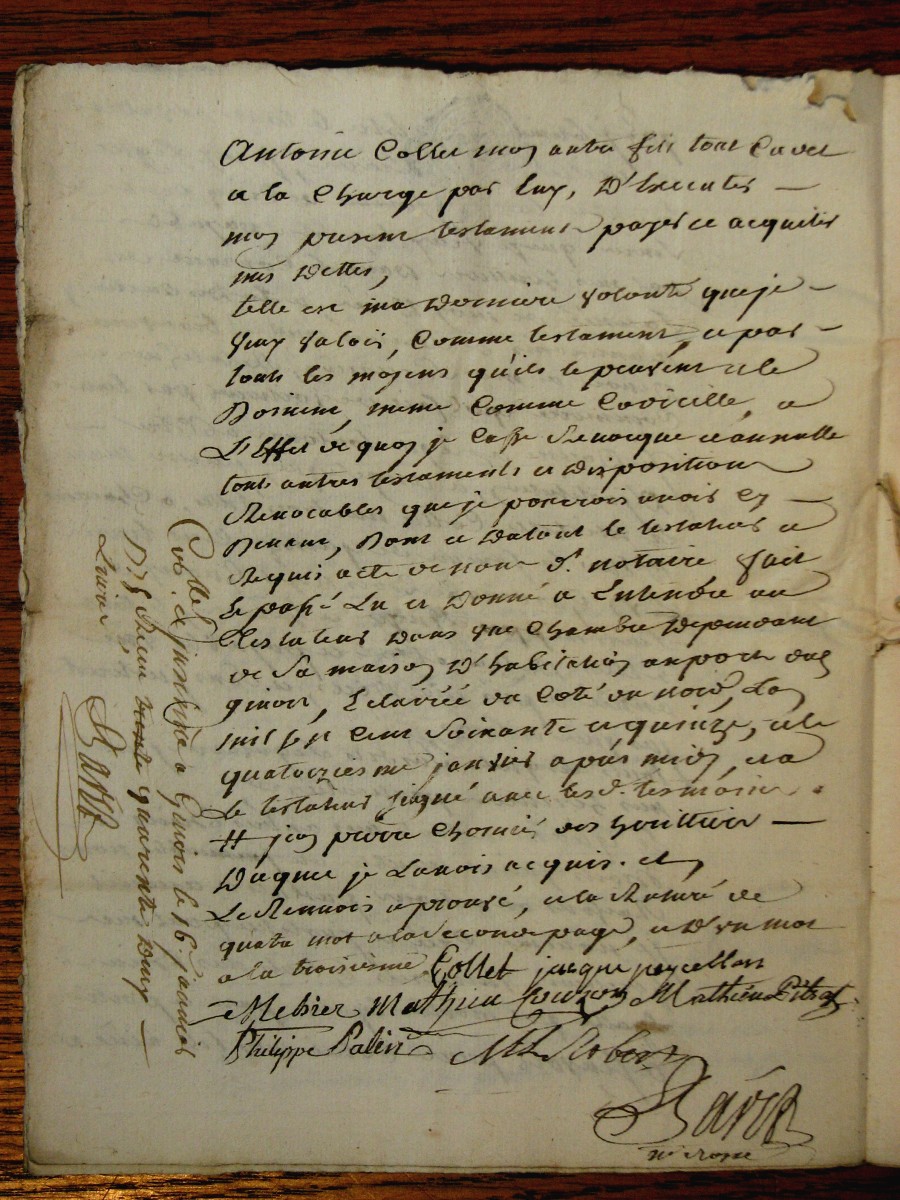 Antoine Collet mon autre fils tout ce que
a la charge par luy, D'Executer
mon present testament payer et acquitter
mes Dettes,
telle est ma Derniere volonté que je
veux valoir, Comme testament, et par
touts les moyens qu'ils le peuvent et le
Doivent, meme Comme Codicille, a
L'Effet de quoy je Casse Revocque et annulle
touts autres testaments et Disposition
Revocables que je pourrois avoir cy
Devant, Dont et Du tout le testateur a
Requis acte de nous d. notaire fait
Le passé Lu et Donné a Entendre au
testateur Dans une Chambre Dependant
de Sa maison D'habitation au port de
givors, Eclairée du Coté du nord, L'an
mil sept cent Soixante et quinze, et le
quatorziesme janvier après midy, et a
Le testateur signé avec lesd. temoins.
# jean pierre des heritiers
Duquel je L'avois acquis. et
Le Renvois aprouvé, et la Rature de
quatre mot a la Seconde page, et D'un mot
a la troisieme Collet jacque peycellon
Mathieu Mathieu Pitrat
Philippe Palin Robert
Ravat
n.re Royal
Collé. et insinué a Givors le 16. janvier
Reçu trente quarente Deux
Ravat